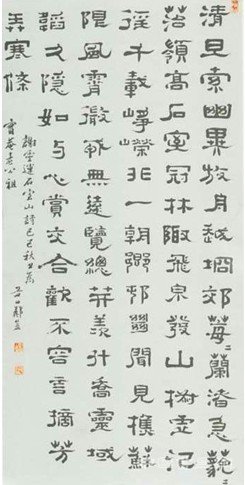 清旦索幽異放舟越坰郊莓〻蘭渚急藐〻
苔嶺高石室冠林陬飛泉發山椒虛泛
徑千載崢嶸非一朝鄉邨絕聞見樵蘇
限風霄微戎無遠覽總笄羨升喬靈域
韜久隱如与心賞交合歡不容言摘芳
弄寒條
謝靈運石室山詩己巳秋書為
雪菴老公祖
谷口鄭簠